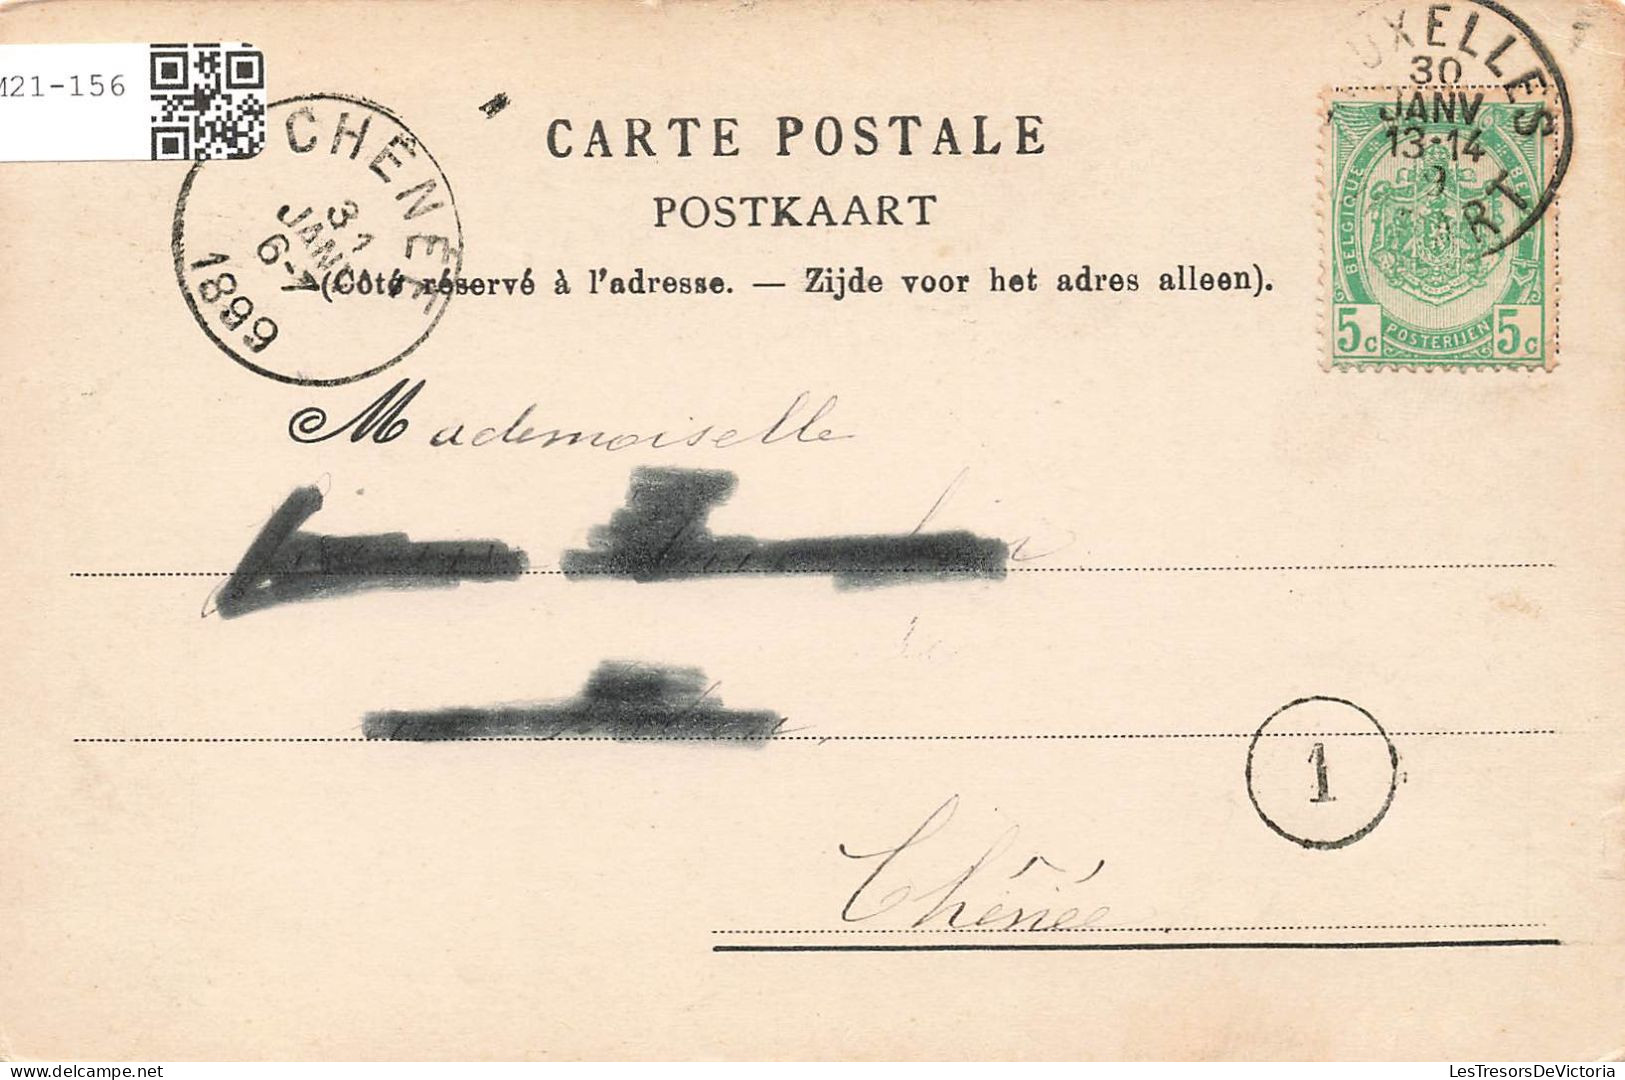 M21-156
CHÊNÉE
31
JANV
6-7
1899
CARTE POSTALE
POSTKAART
(Côté réservé à l'adresse. — Zijde voor het adres alleen).
BRUXELLES
30
JANV
13-14
9
BELGIQUE
BELGIË
5c POSTERIJEN 5c
Mademoiselle
1
Chênée
LesTresorsDeVictoria